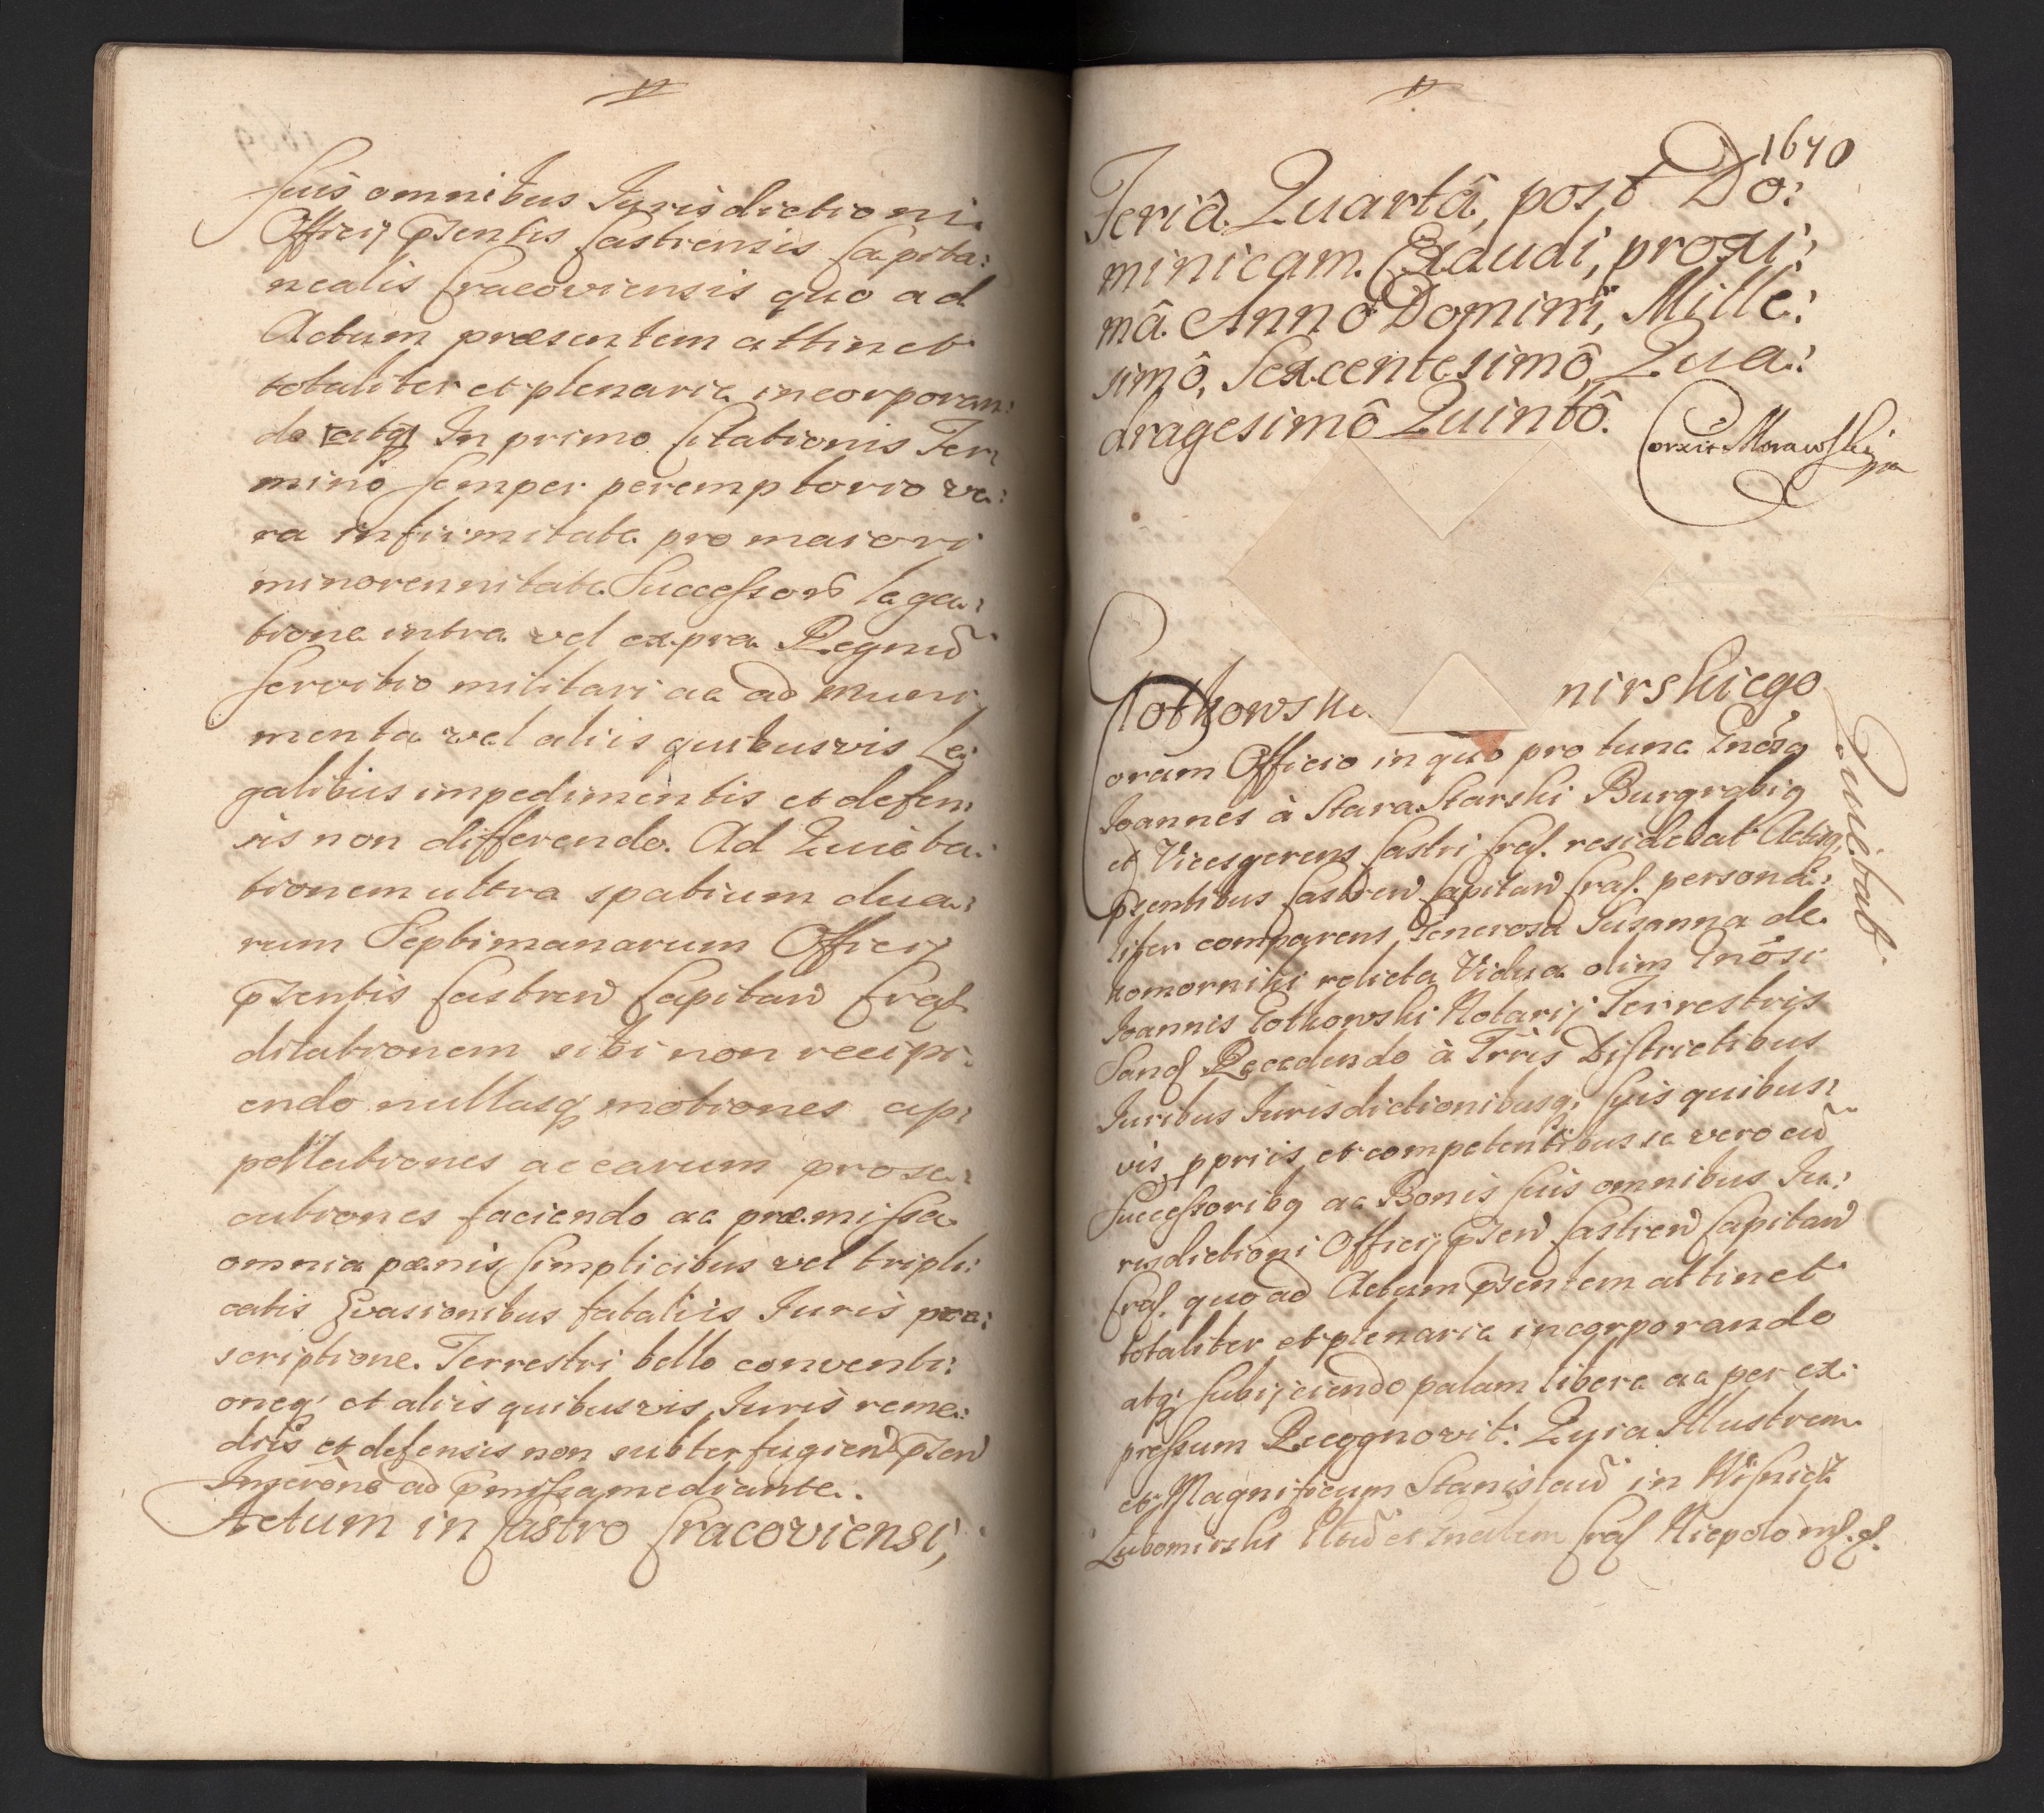 suis omnibus Jurisdictioni
Officij pñtentis Castrensis Capita:
nealis Cracoviensis quo ad
Actum præsentem attinet
totaliter et plenarie incorporan:
do In primo Citationis Ter:
mino semper peremptorio ve:
ra infirmitate pro maiori
minorennitate Successorũ lega:
tione intra vel extra Regnũ
servitio militari ac ad muni
menta vel aliis quibusvis Le:
galibus impedimentis et defen:
sis non differendo. Ad Quieta:
tionem ultra spatium dua:
rum Septimanarum Officij
pñtentis Castreñ Capitañ Craĉ
dilationem sibi non recipi:
endo nullasq motiones ap:
pellationes ac earum prose:
cutiones faciendo ac præmissa
omnia pænis simplicibus vel tripli:
catis Evasionibus fataliis Juris præ:
scriptione Terrestri bello conventi:
oneq; et aliis quibusvis Juris reme:
diis et defensis non subterfugieñ pñseñ
ad pmissa mediante.
Actum in Castro Cracoviensi,
1640
Feriâ Quartâ, post Do:
minicam Exaudi, proxi:
mâ Annô Domini, Mille:
simô, Sexcentesimô, Qua:
dragesimô Quintô.
Correxit Morawski
mp
nirskiego
Quietat
Coram Officio in quo pro tunc Gnôsq
Joannes à Stara Starski Burgrabiq
et Vicesgerens Castri Craĉ. residebat Actisq
pñtentibus Castreñ Capitañ Craĉ. persona:
liter comparens Generosa Susanna de
Komorniki relicta Vidua olim Gnôsi
Joannis Notarij Terrestris
Sanĉ Recedendo à Tris Districtibus
Juribus Jurisdictionibusq; suis quibus:
vis ppriis et competentibus se vero cũ
Successoribq ac Bonis suis omnibus Ju:
risdictioni Officij pñseñ Castreñ Capitañ
Craĉ. quo ad Actum pñsentem attinet
totaliter et plenarie incorporando
atq; subijciendo palam libere ac per ex:
pressum Recognovit: Quia Illustrem
et Magnificum Stanislaũ in Wisnicz
Lubomirski Craĉ Niepolom̃.